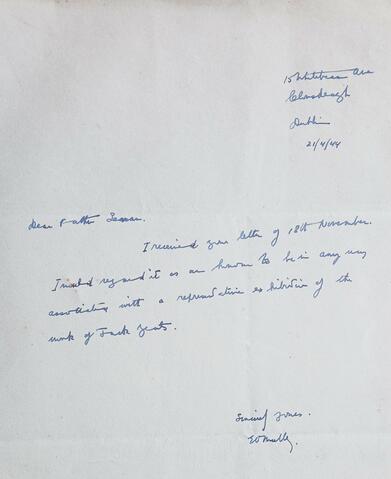 15 Whitebeam Ave
Clonskeagh
Dublin
21/4/44
Dear Father
I received your letter of 18th November.
I would regard it as an honour to be in any way
associated with a representative exhibition of the
work of Jack Yeats.
Sincerely Yours.